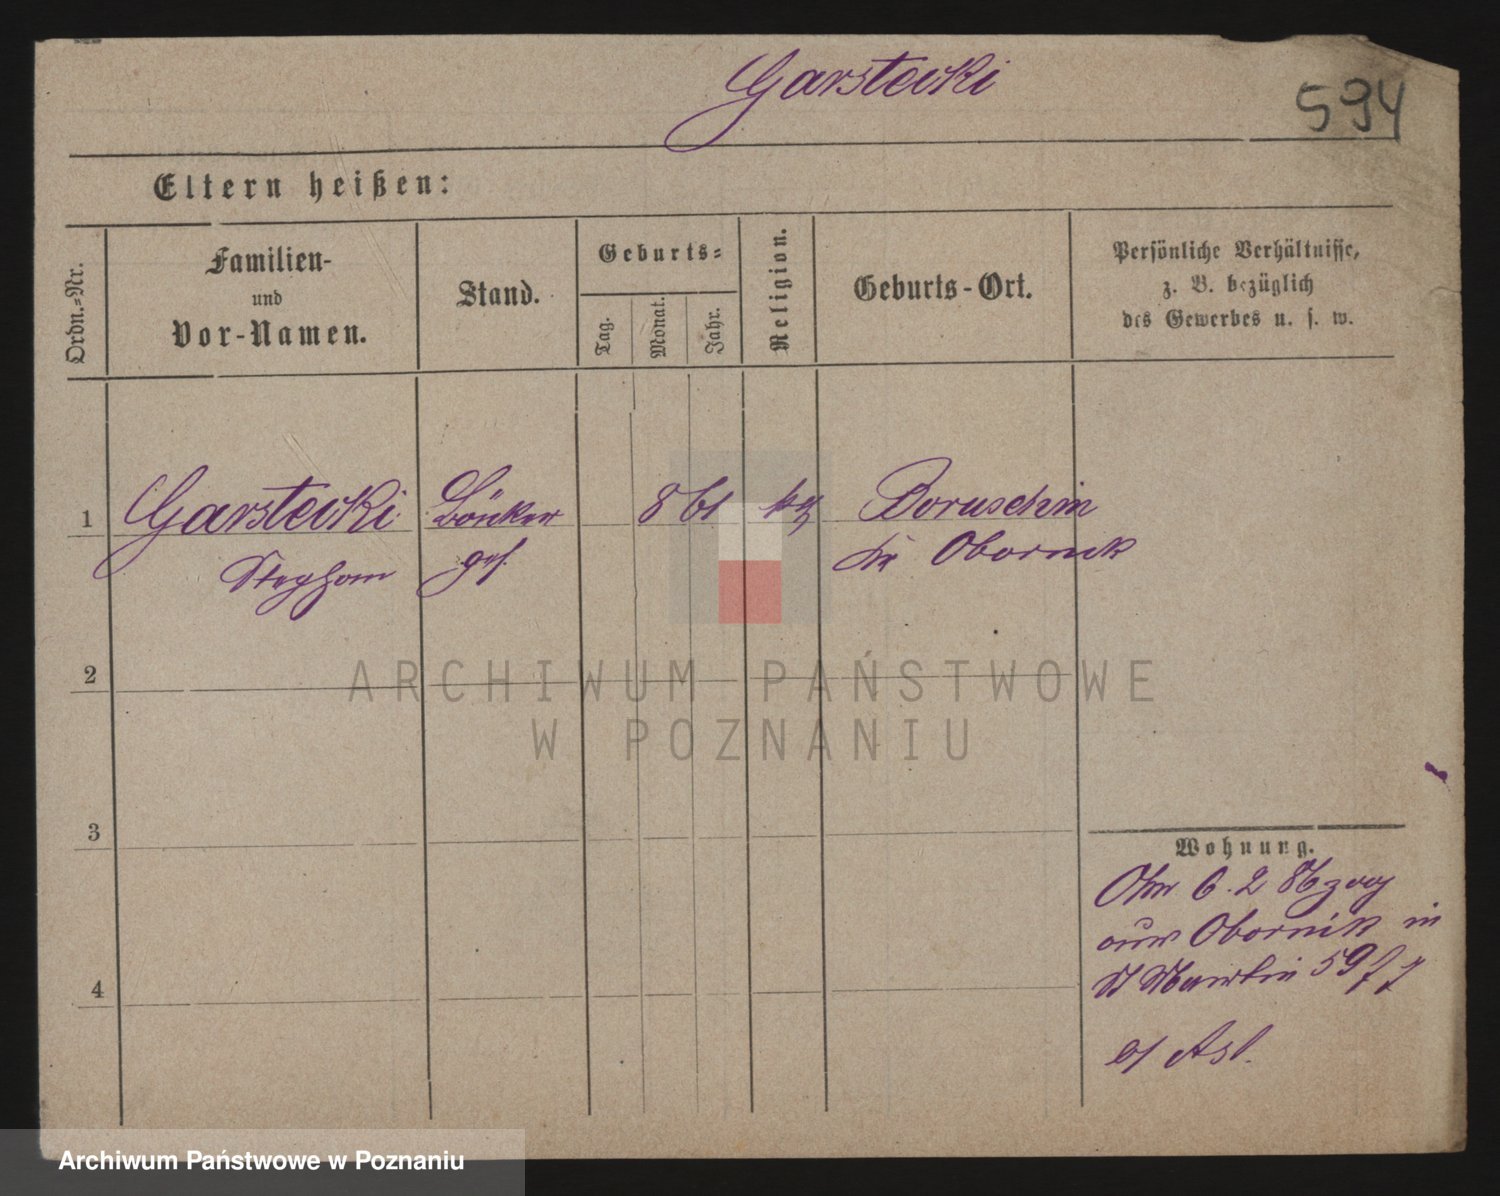 Garstecki
594
Eltern heißen:
Ordn.-Nr.
Familien-
und
Vor-Namen.
Stand.
Geburts-
Tag.
Monat.
Jahr.
Religion.
Geburts-Ort.
Persönliche Verhältnisse,
z. B. bezüglich
des Gewerbes u. s. w.
1 Garstecki Bäcker 8 61 Boruschin
Stephan ges. Kr Obornik
2
3
4
Wohnung.
Am 6. 2 86 zog
aus Obornik in
St Martin 59
ARCHIWUM PAŃSTWOWE
W POZNANIU
Archiwum Państwowe w Poznaniu